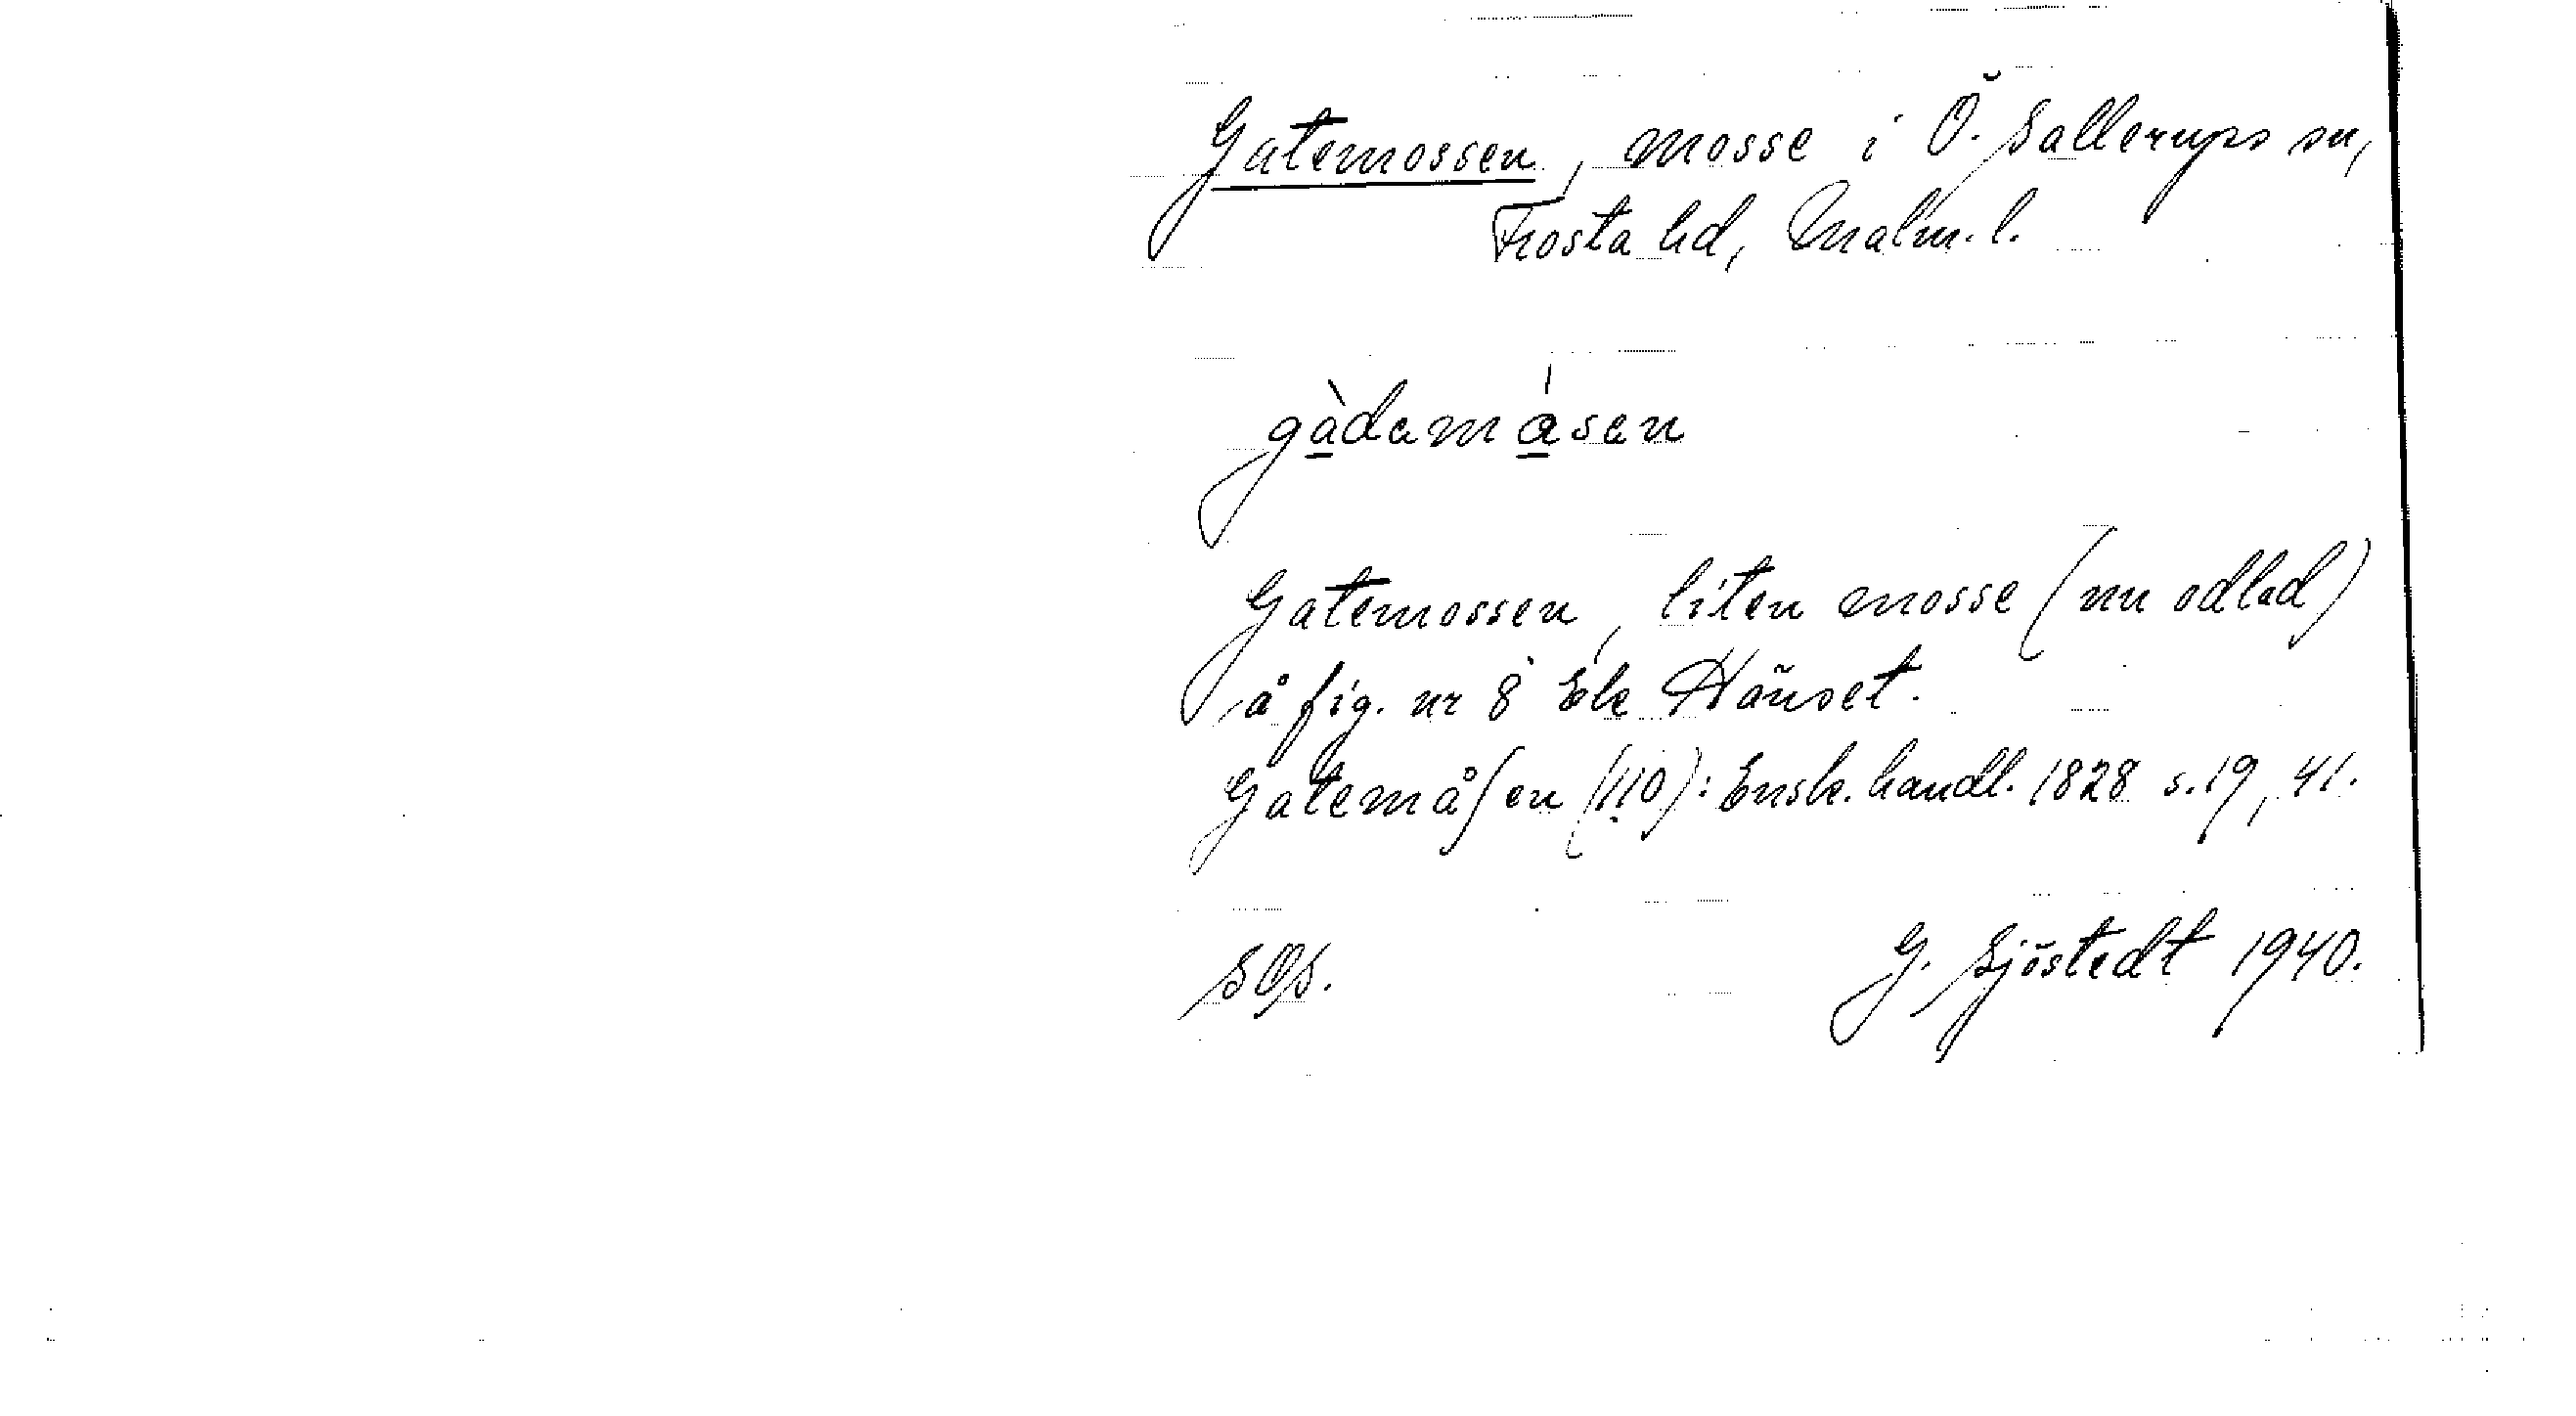 Gatemossen, mosse i Ö. Sallerups sn,
Frosta hd, Malm. l.
gàdemåsen
Gatemossen, liten mosse (nu odlad)
å fig. nr 8 Ek Hänset.
Gatemåſen (110): Ensk. handl. 1828 s. 19, 41.
SOS.
G. Sjöstedt 1940.